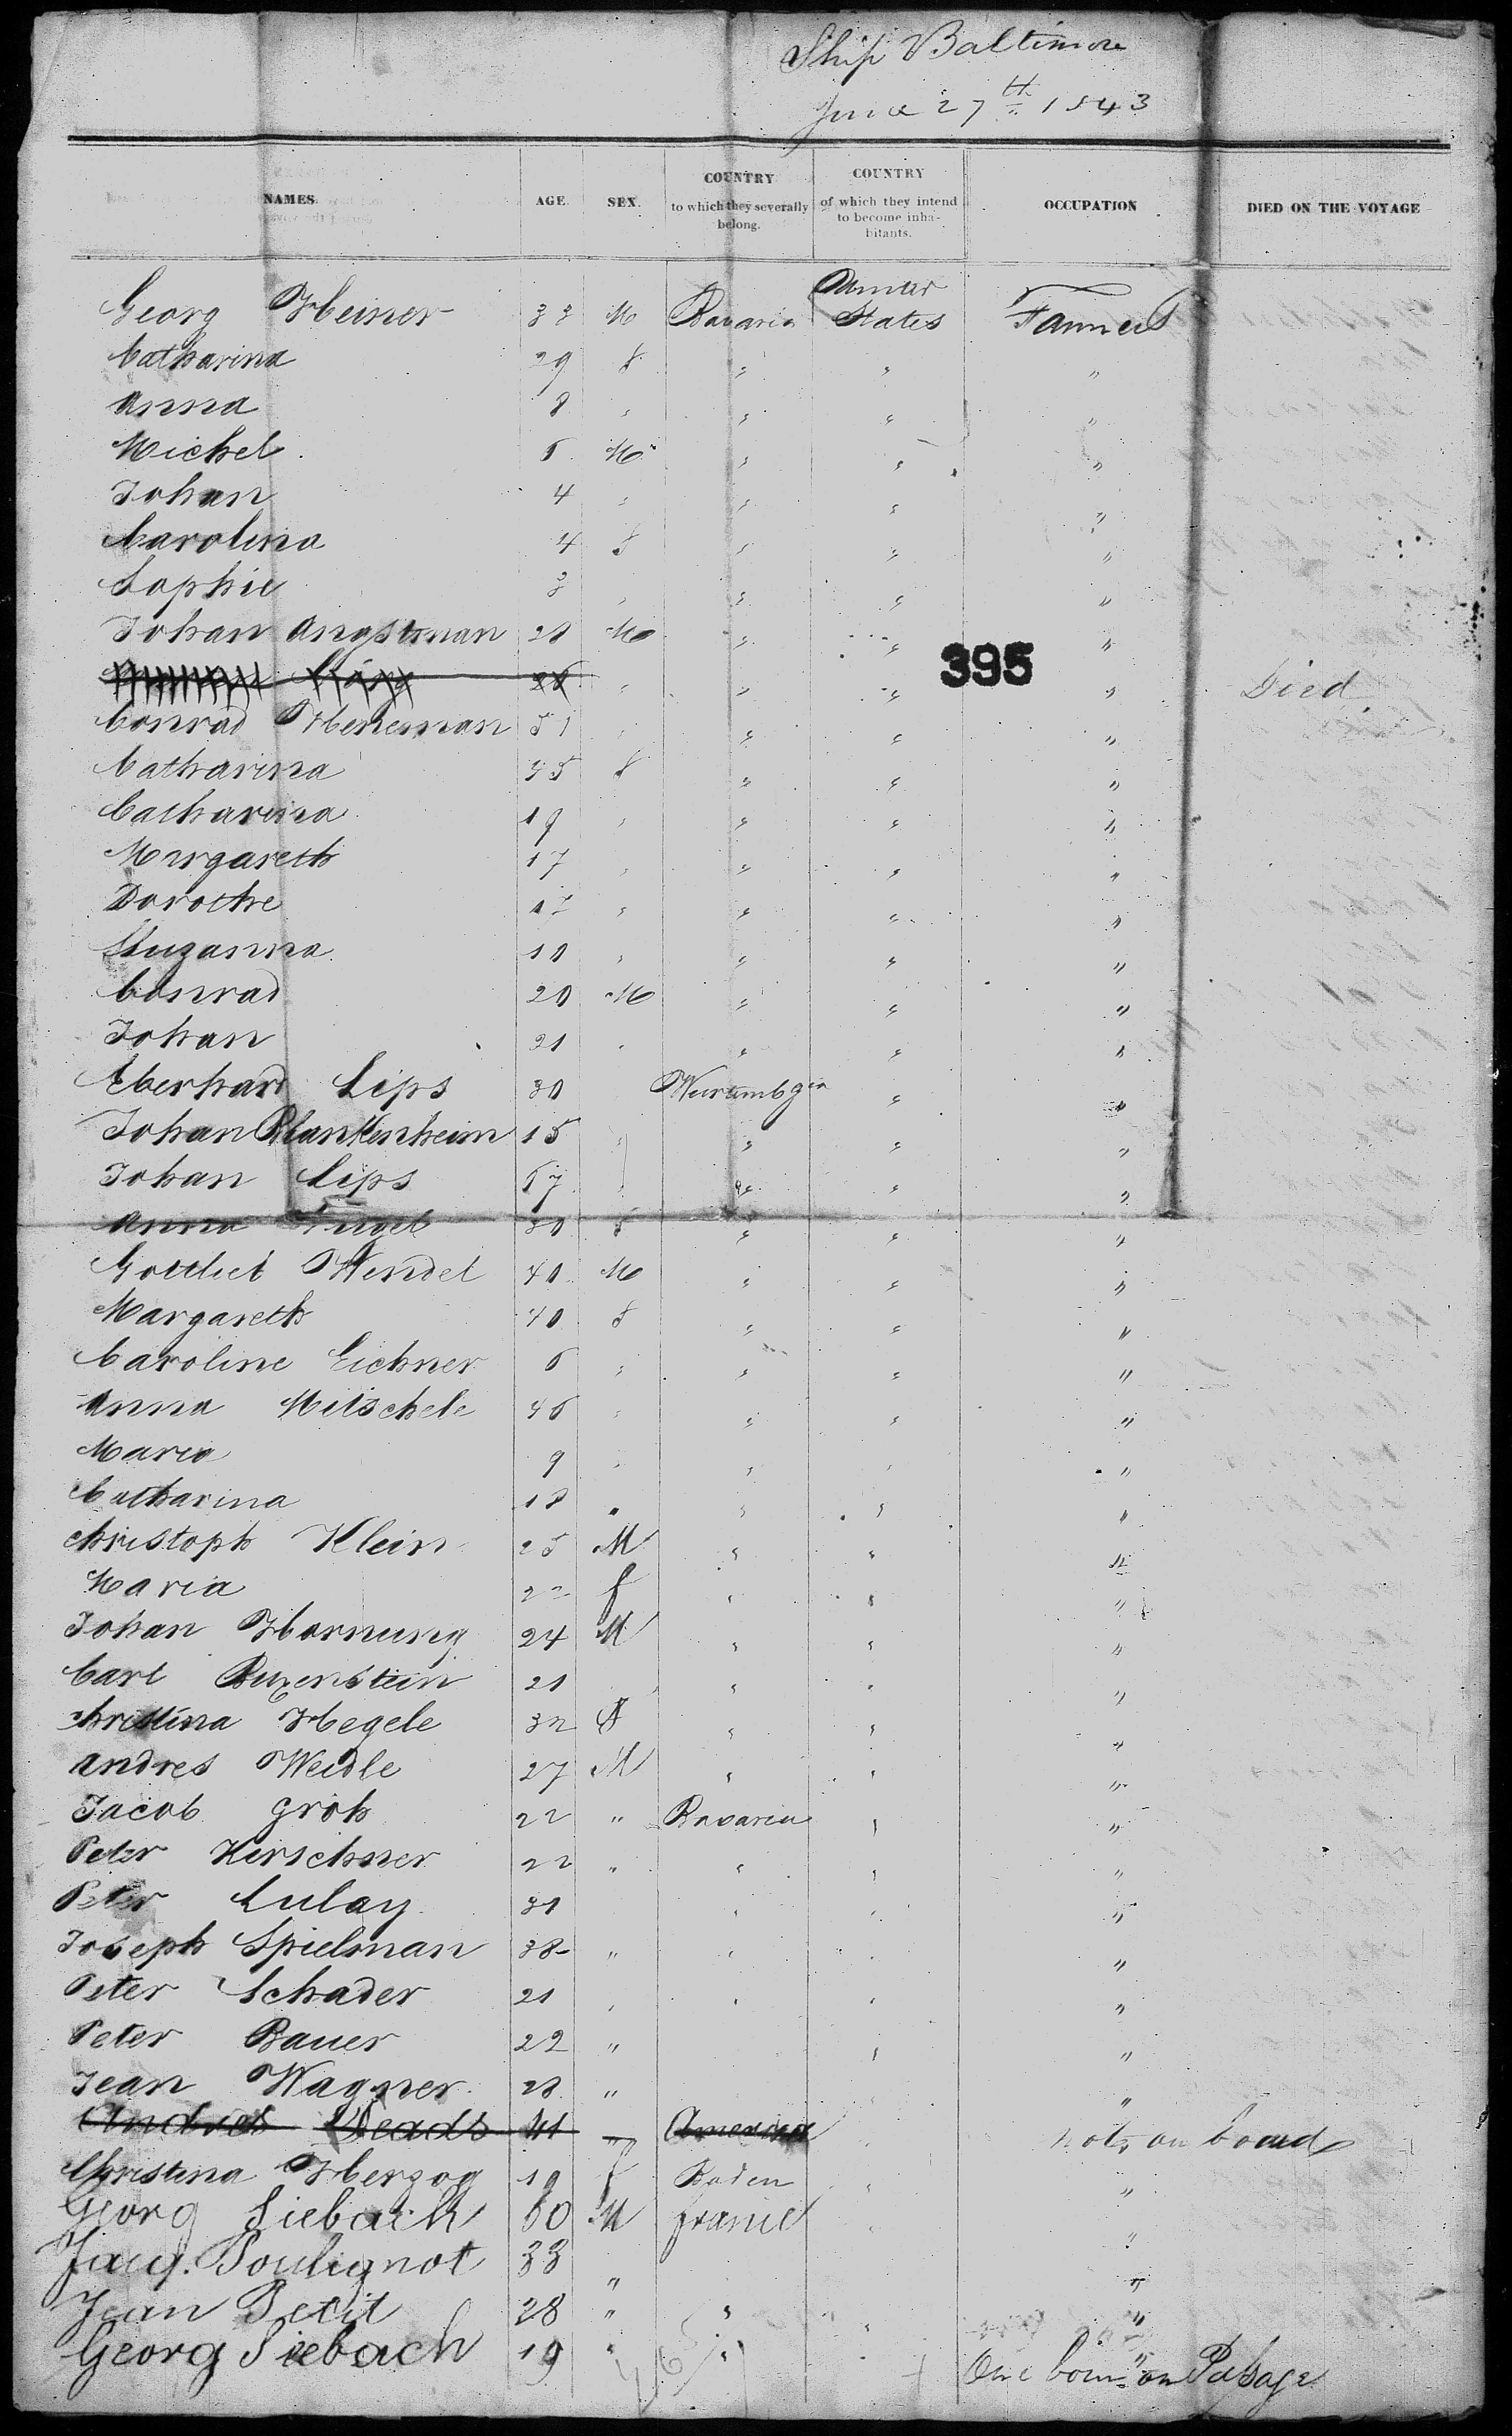 Ship Baltimore
June 27th 1843
NAMES AGE. SEX. COUNTRY to which they severally belong. COUNTRY of which they intend to become inhabitants. OCCUPATION DIED ON THE VOYAGE
Georg Heiner 33 M Bavaria States Farmers
Catharina 29 f " " "
Anna 8 " " " "
Michel 6 M " " "
Johan 4 " " " "
Carolina 4 f " " "
Sophie 3 " " " "
Johan Angstman 28 M " " "
395
" " " " Died
Conrad Heneman 51 " " " "
Catharina 45 f " " "
Catharina 19 " " " "
Margareth 17 " " " "
Dorothe " " " "
Suzanna 10 " " " "
Conrad 20 M " " "
Johan 21 " " " "
Eberhard Lips 30 "
Johan Blankenheim 15 " " " "
Johan Lips 67 " " " "
Anna 30 f " " "
Gottlieb Wendel 40 M " " "
Margareth 40 f " " "
Caroline Eichner 6 " " " "
Anna Mitschele 46 " " " "
Maria 9 " " " "
Catharina 18 " " " "
Christoph Klein 25 M " " "
Maria 22 f " " "
Johan Hornung 24 M " " "
Carl Buxenstein 21 " " " "
Christina Hegele 32 f " " "
Andres Weidle 27 M " " "
Jacob Groh 22 " Bavaria " "
Peter Kirschner 22 " " " "
Peter Lulay 31 " " "
Joseph Spielman 38 " " " "
Peter Schader 21 " " " "
Peter Bauer 22 " " "
Jean Wagner 28 " "
Andres Deads 41 " America not on board
Christina Herzog 19 f Baden " "
Georg Siebach 50 M france " "
Jacq. Poulignot 33 " "
Jean Petit 28 " " " "
Georg Siebach 19 " " " "
One born on Passage